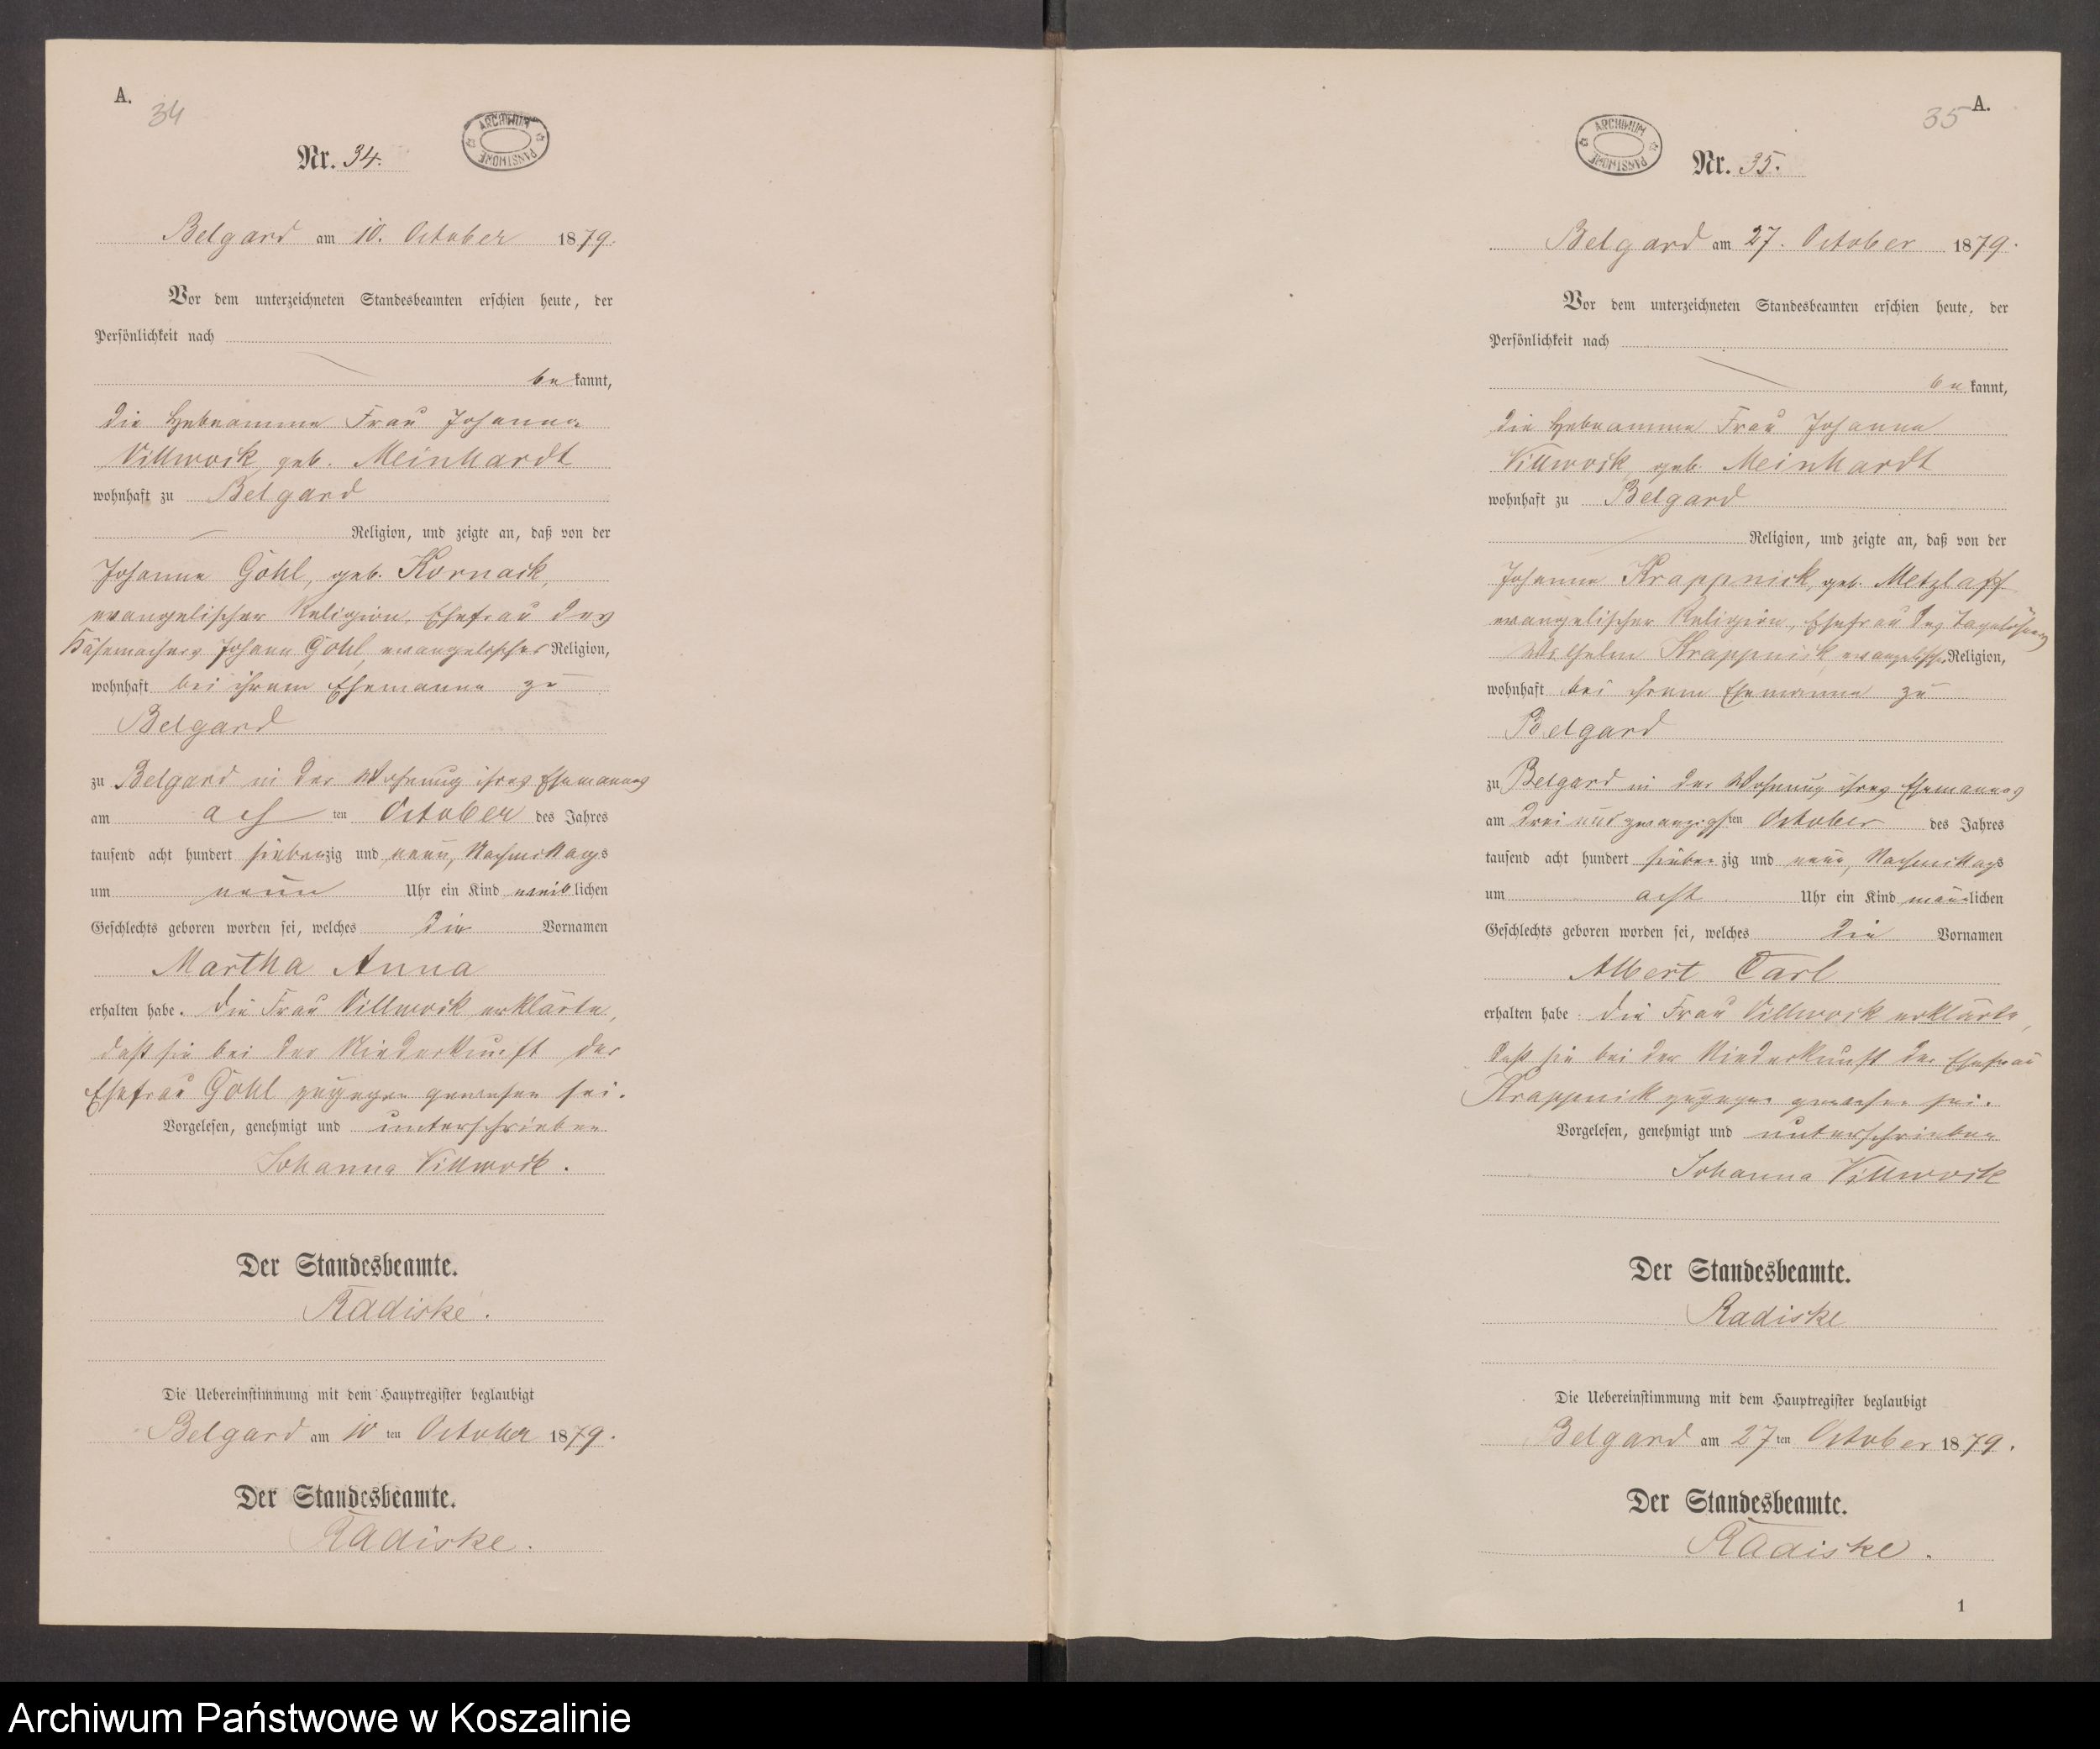 A.
34
ARCHIWUM PAŃSTWOWE
Nr. 34.
Belgard am 10. October 1879.
Vor dem unterzeichneten Standesbeamten erschien heute, der
Persönlichkeit nach
be kannt,
die Hebeamme Frau Johanna
Villwock, geb. Meinhardt
wohnhaft zu Belgard
Religion, und zeigte an, daß von der
Johanna Göhl, geb. Kornack,
evangelischer Religion, Ehefrau des
Käsemachers Johann Göhl, evangelischer Religion,
wohnhaft bei ihrem Ehemanne zu
Belgard
zu Belgard in der Wohnung ihres Ehemannes
am ach ten October des Jahres
tausend acht hundert siebenzig und neun, Nachmittags
um neun Uhr ein Kind weiblichen
Geschlechts geboren worden sei, welches die Vornamen
Martha Anna
erhalten habe. Die Frau Villwock erklärte,
daß sie bei der Niederkunft der
Ehefrau Göhl zugegen gewesen sei.
Vorgelesen, genehmigt und unterschrieben
Johanna Villwock.
Der Standesbeamte.
Radiske.
Die Uebereinstimmung mit dem Hauptregister beglaubigt
Belgard am 10 ten October 1879.
Der Standesbeamte.
Radiske.
35
A.
ARCHIWUM PAŃSTWOWE
Nr. 35.
Belgard am 27. October 1879.
Vor dem unterzeichneten Standesbeamten erschien heute, der
Persönlichkeit nach
be kannt,
die Hebeamme Frau Johanna
Villwock, geb. Meinhardt
wohnhaft zu Belgard
Religion, und zeigte an, daß von der
Johanna Krappnick, geb. Metzlaff
evangelischer Religion, Ehefrau des Tagelöhners
Wilhelm Krappnick, evangelischer Religion,
wohnhaft bei ihrem Ehemanne zu
Belgard
zu Belgard in der Wohnung ihres Ehemannes
am drei und zwanzigsten October des Jahres
tausend acht hundert siebenzig und neun, Nachmittags
um acht Uhr ein Kind männlichen
Geschlechts geboren worden sei, welches die Vornamen
Albert Carl
erhalten habe. Die Frau Villwock erklärte,
daß sie bei der Niederkunft der Ehefrau
Krappnick zugegen gewesen sei.
Vorgelesen, genehmigt und unterschrieben
Johanna Villwock
Der Standesbeamte.
Radiske
Die Uebereinstimmung mit dem Hauptregister beglaubigt
Belgard am 27 ten October 1879.
Der Standesbeamte.
Radiske.
1
Archiwum Państwowe w Koszalinie